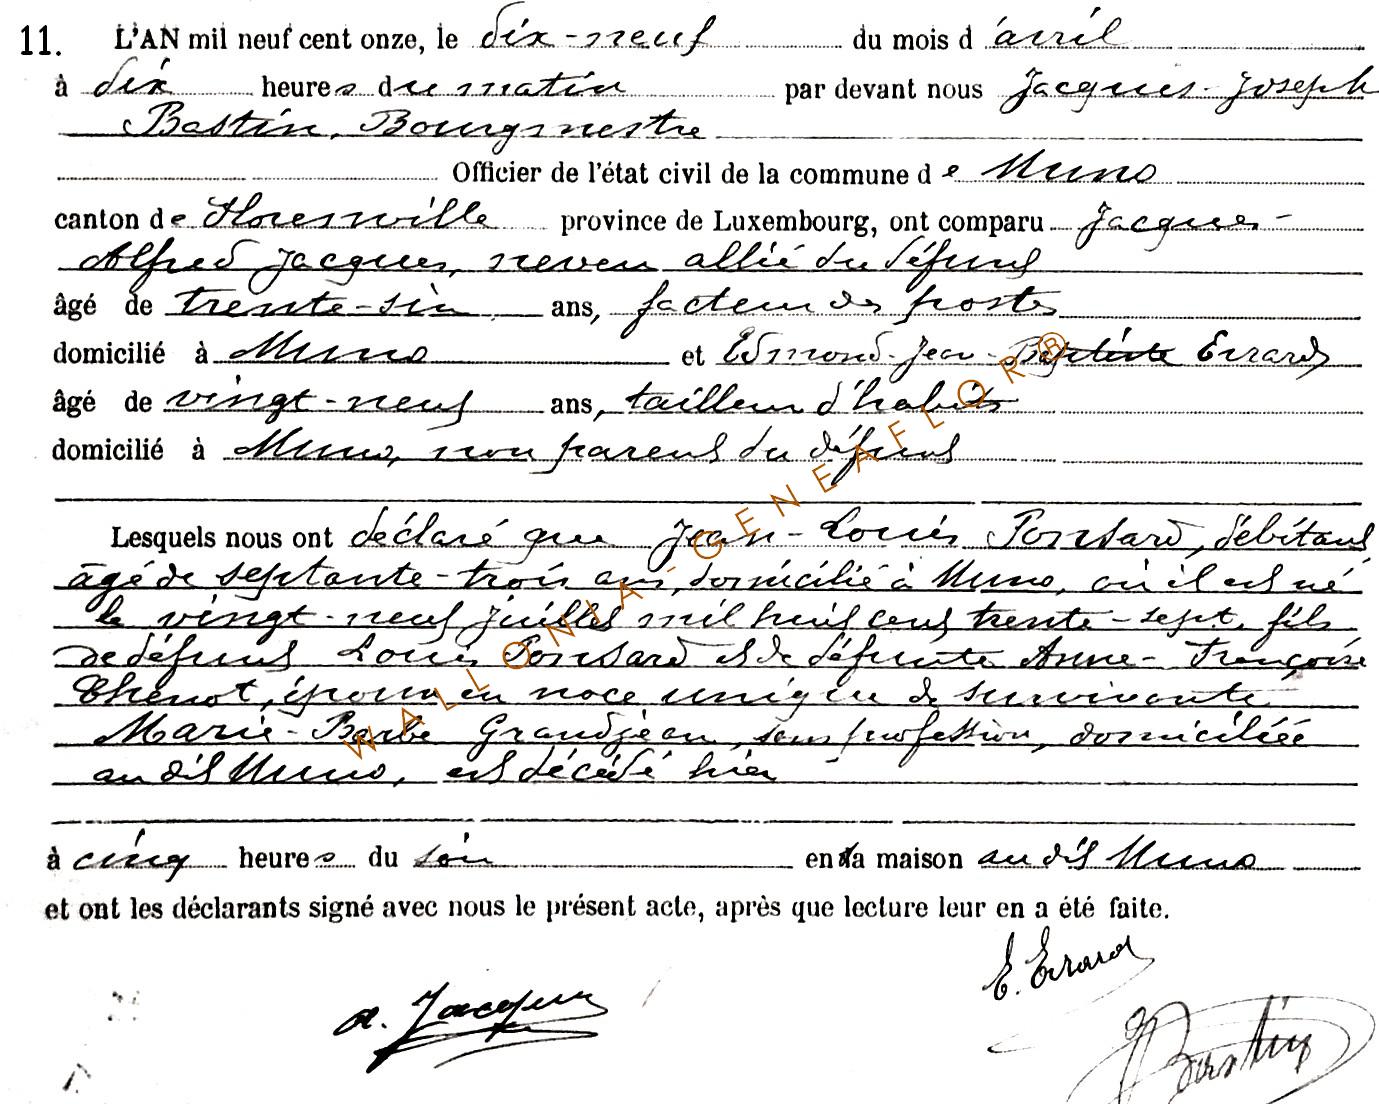 11. L'AN mil neuf cent onze, le dix-neuf du mois d'avril
à dix heures du matin par devant nous Jacques-Joseph
Bastin, Bourgmestre
Officier de l'état civil de la commune de Muno
canton de Florenville province de Luxembourg, ont comparu Jacques-
Alfred Jacques, neveu allié du défunt
âgé de trente-six ans, facteur des postes
domicilié à Muno et Edmond-Jean-Baptiste Errard
âgé de vingt-neuf ans, tailleur d'habits
domicilié à Muno, non parent du défunt
Lesquels nous ont déclaré que Jean-Louis Ponsard, débitant
âgé de septante-trois ans, domicilié à Muno, où il est né
le vingt-neuf juillet mil huit cent trente-sept, fils
de défunt Louis Ponsard et de défunte Anne-Françoise
Thenot, époux en noce unique de survivante
Marie-Barbe Grandjean, sans profession, domiciliée
au dit Muno, est décédé hier
à cinq heures du soir en sa maison au dit Muno
et ont les déclarants signé avec nous le présent acte, après que lecture leur en a été faite.
E. Errard
A. Jacques
J Bastin
WALLONIA-GENEAFLOR®